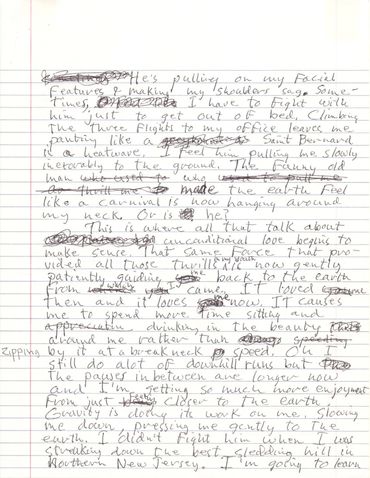 He's pulling on my facial
features & making my shoulders sag. Some-
times, I have to fight with
him just to get out of bed. Climbing
the three flights to my office leaves me
panting like a Saint Bernard
in a heatwave. I feel him pulling me slowly
inexorably to the ground. The funny old
man who
made the earth feel
like a carnival is now hanging around
my neck. Or is he?
This is where all that talk about
unconditional love begins to
make sense. That same force that pro-
vided all those thrills is now gently and
patiently guiding me back to the earth
from which I came. It loved me
then and it loves me now. It causes
me to spend more time sitting and
drinking in the beauty
around me rather than
zipping by it at a breakneck speed. Oh I
still do alot of downhill runs but
the pauses in between are longer now
and I'm getting so much more enjoyment
from just closer to the earth.
Gravity is doing its work on me. Slowing
me down, pressing me gently to the
earth. I didn't fight him when I was
streaking down the best sledding hill in
Northern New Jersey. I'm going to learn